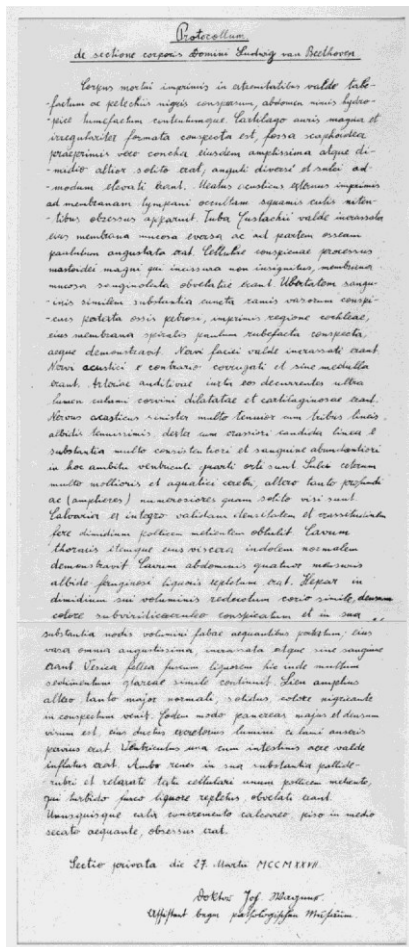 Protocollum
de sectione corporis Domini Ludwig van Beethoven
Corpus mortui imprimis in extremitatibus valde tabe-
-factum ac petechiis nigris conspersum, abdomen nimis hydro-
-pice tumefactum contentumque. Cartilago auris magna et
irregulariter formata conspecta est, fossa scaphoidea
praeprimis vero concha eiusdem amplissima atque di-
-midio altior solito erat, anguli diversi et sulci ad-
-modum elevati erant. Meatus acusticus externus imprimis
ad membranam tympani occultam squamis cutis niten-
-tibus obsessus apparuit. Tuba Eustachii valde incrassata
eius membrana mucosa eversa ac ad partem osseam
paululum angustata erat. Cellulae conspicuae processus
mastoidei magni qui incisura non insignitus, membrana
mucosa sanguinolenta obvelatae erant. Ubertatem sangu-
-inis similem substantia cuncta ramis vasorum conspi-
-cuis pertexta ossis petrosi, imprimis regione cochleae,
eius membrana spiralis paulum rubefacta conspecta,
aeque demonstravit. Nervi faciei valde incrassati erant.
Nervi acustici e contrario corrugati et sine medulla
erant. Arteriae auditivae iuxta eos decurrentes ultra
lumen culami corvini dilatatae et cartilaginosae erant.
Nervus acusticus sinister multo tenuior cum tribus lineis
albidis tenuissimis, dexter cum crassiori candida linea e
substantia multo consistentiori et sanguine abundantiori
in hoc ambitu ventriculi quarti orti sunt Sulci ceterum
multo mollioris et aquatici cerebri, altero tanto profundi
ac (ampliores) numerosiores quam solito visi sunt.
Calvaria ex integro validam densitatem et crassitudinem
fere dimidium pollicem metientem obtulit. Cavum
thoracis itemque eius viscera indolem normalem
demonstravit. Cavum abdominis quatuor mensuris
albide fuliginosi liquoris repletum erat. Hepar in
dimidium sui voluminis reductum corio simile, densum
colore subviridicaeruleo conspicatum et in sua
substantia nodis volumini fabae aequantibus pertextum; eius
vasa omnia angustissima, incrassata atque sine sanguine
erant. Vesica fellea fuscum liquorem hic inde multum
sedimentum glareae simile continuit. Lien amplius
altero tanto major normali, solidus, colore nigricante
in conspectum venit. Eodem modo pancreas majus et densum
visum est, eius ductus excretorius lumini culami anseris
pervius erat. Ventriculus una cum intestinis aere valde
inflatus erat. Ambo renes in sua substantia pallide-
-rubri et relaxati tela cellulari unum pollicem metiente,
qui turbido fusco liquore repletus, obvelati erant.
Unusquisque calix concremento calcareo, piso in medio
secato aequante, obsessus erat.
Sectio privata die 27. Martii MCCMXXVII.
Doktor Jos. Wagner
Assistent beym pathologischen Museum.